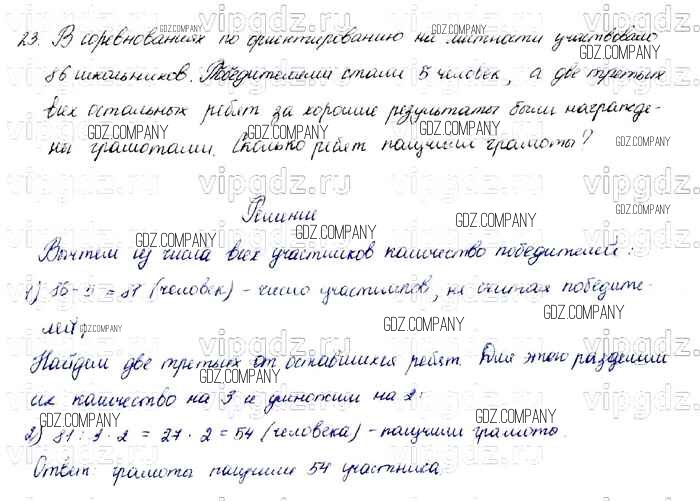 23. В соревнованиях по ориентированию на местности участвовало
86 школьников. Победителями стали 5 человек, а две третьих
всех остальных ребят за хорошие результаты были награжде-
ны грамотами. Сколько ребят получили грамоты?
Решение
Вычтем из числа всех участников количество победителей:
1) 86 - 5 = 81 (человек) - число участников, не считая победите-
лей;
Найдем две третьих от оставшихся ребят. Для этого разделим
их количество на 3 и умножим на 2:
2) 81 : 3 · 2 = 27 · 2 = 54 (человека) - получили грамоты.
Ответ: грамоты получили 54 участника.
vipgdz.ru
GDZ.COMPANY